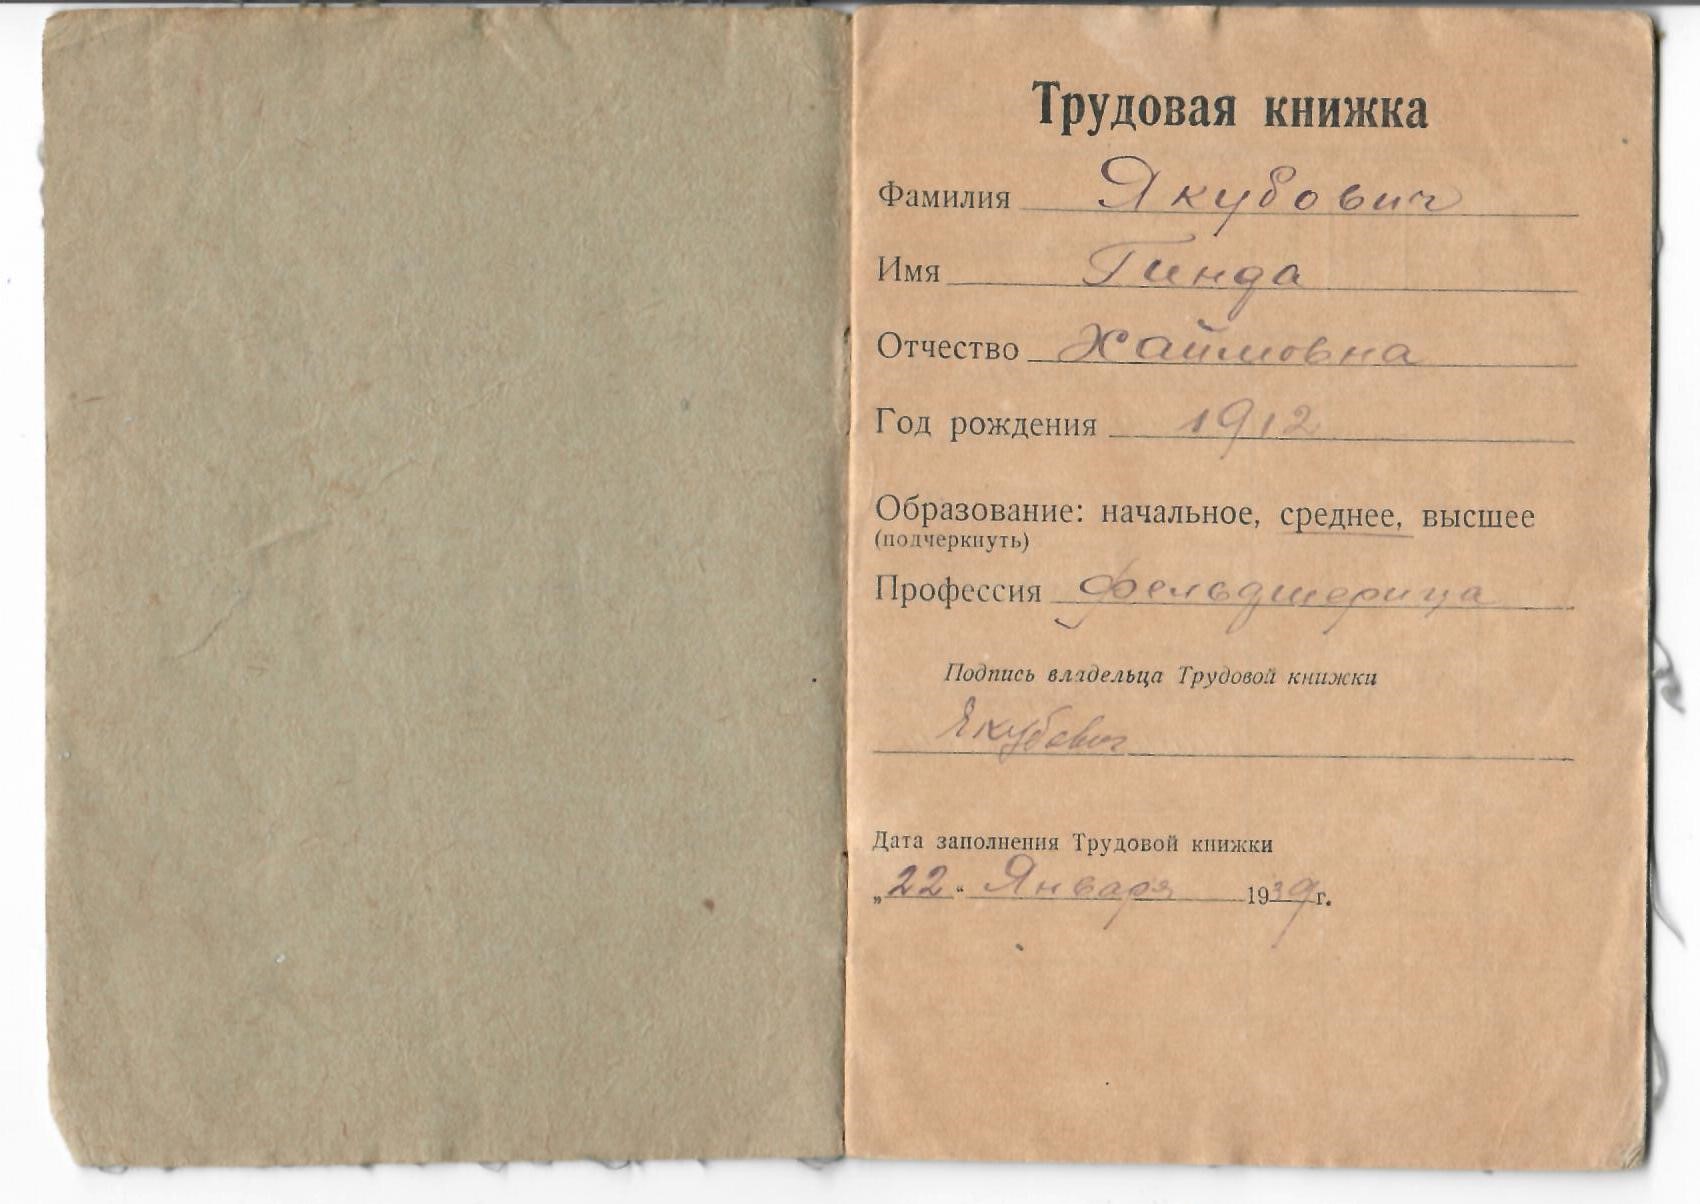 Трудовая книжка
Фамилия Якубович
Имя Гинда
Отчество Хаймовна
Год рождения 1912
Образование: начальное, среднее, высшее
(подчеркнуть)
Профессия фельдшерица
Подпись владельца Трудовой книжки
Якубович
Дата заполнения Трудовой книжки
„22“ Января 1939г.